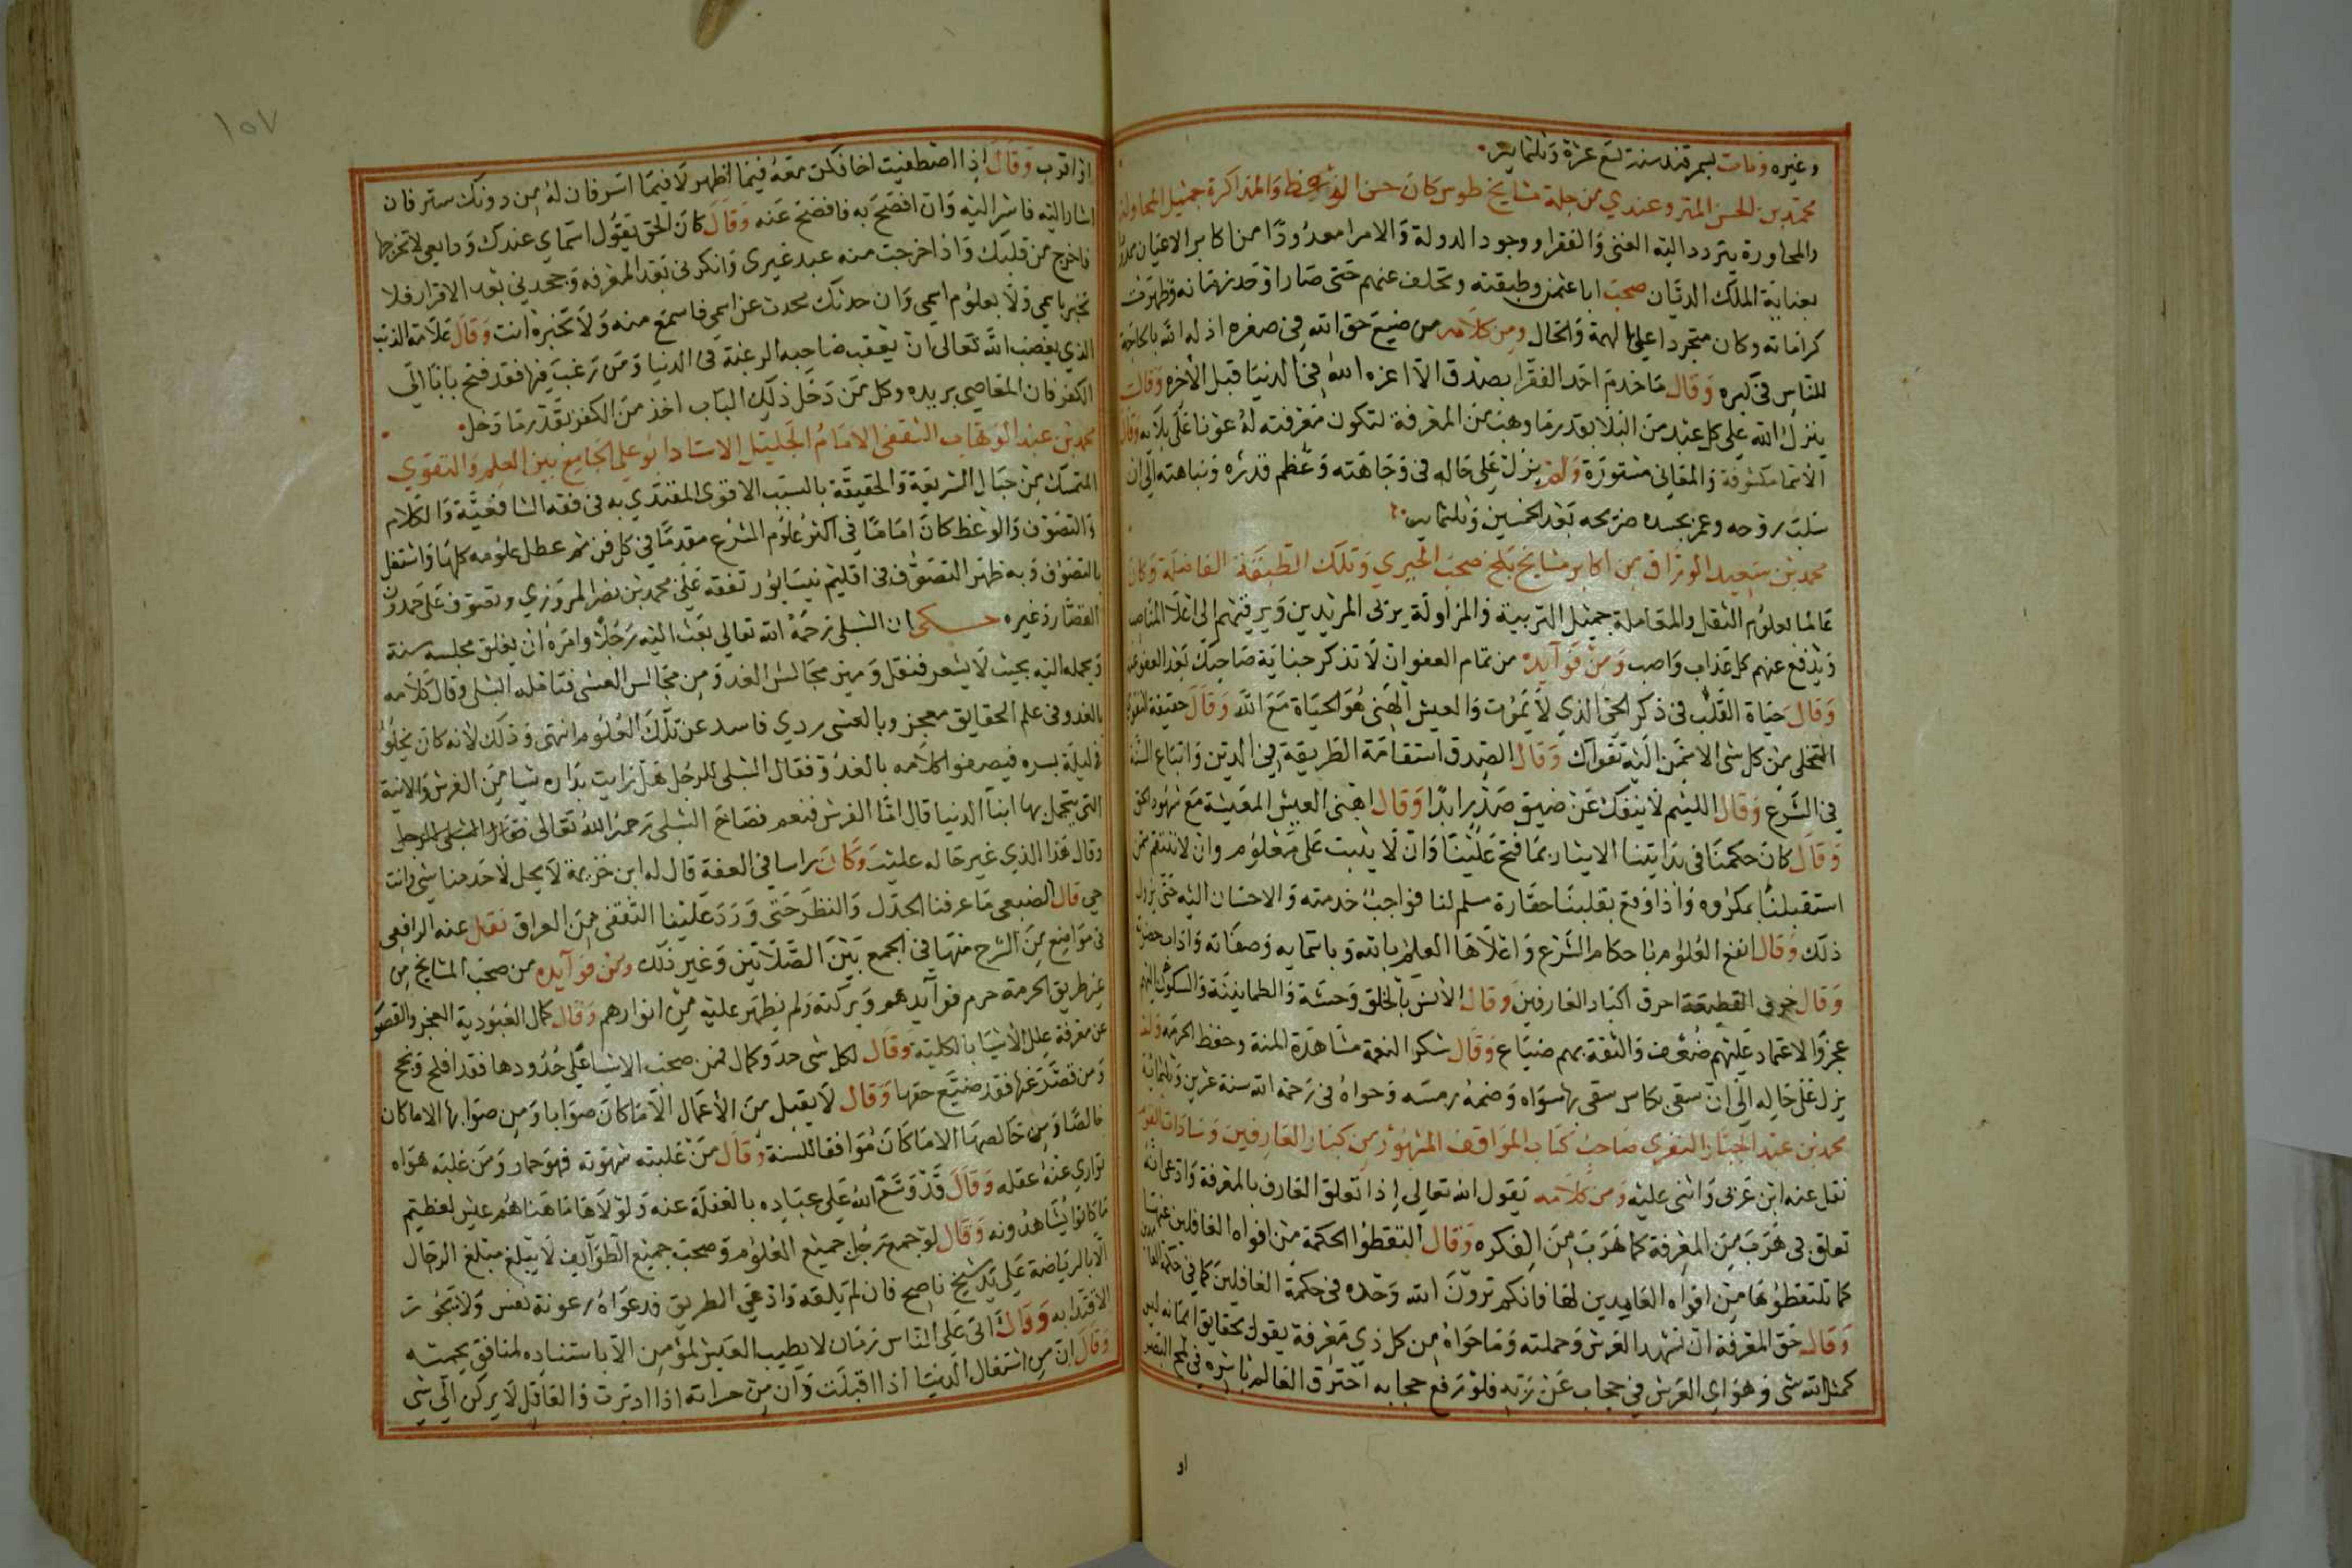 وغيره ومات بسمرقند سنة تسع عشرة وثلثماية
محمد بن الحسن المتروعندي من جلة مشايخ طوس كان حسن الوعظ والمذاكرة جميل المحاولة
والمحاورة يتردد اليه الغنى والفقرا ووجود الدولة والامرا معدودا من اكابر الاعيان
بعناية الملك الديان صحب ابا عثمن وطبقته وتخلف عنهم حتى صار اوحد زمانه وظهرت
كراماته وكان متجردا على الهمة والحال ومن كلامه من ضيع حق الله في صغره اذله الله بالحاجة
للناس في كبره وقال ما خدم احد الفقرا بصدق الا اعزه الله في الدنيا قبل الاخره وقال
ينزل الله على كل عبد من البلا بقدر ما وهب من المعرفة لتكون معرفته له عونا على بلايه وقال
الاسما مكشوفة والمعاني مستورة ولم يزل على حاله في وجاهته وعظم قدره ونباهته الى ان
سلبت روحه وعمر بجسده ضريحه بعد الخمسين وثلثمايه
محمد بن سعيد الوراق من اكابر مشايخ بلخ صحب الحيري وتلك الطبقة الفاضلة وكان
عالما بعلوم الثقل والمعاملة جميل التربية والمزاولة يربى المريدين ويرقيهم الى اعلا المناصب
ويدفع عنهم كل عذاب واصب ومن فوايده من تمام العفو ان لا تذكر جناية صاحبك بعد العفو عنه
وقال حياة القلب في ذكر الحي الذي لا يموت والعيش الهنى هو الحياة مع الله وقال حقيقة التقوى
التخلى من كل شى الا ممن اليه تقواك وقال الصدق استقامة الطريقة في الدين واتباع السنة
في الشرع وقال اللئيم لا ينفك عن ضيق صدر ابدا وقال اهنى العيش المعيشة مع شهود الحق
وقال كان حكمنا في بدايتنا الايثار بما فتح علينا وان لا يثبت على معلوم وان لا ننتقم ممن
استقبلنا بمكروه واذا وقع بقلبنا حقارة مسلم لنا فواجب خدمته والاحسان اليه حتى يزول
ذلك وقال انفع العلوم علم باحكام الشرع واعلاها العلم بالله وباسمايه وصفاته واداب حضرته
وقال خوف القطيعة احرق اكباد العارفين وقال الانس بالخلق وحشة والطمانينة والسكون اليهم
عجز والاعتماد عليهم ضعف والثقة بهم ضياع وقال شكر النعمة مشاهدة المنة وحفظ الحرمة ولم
يزل على حاله الى ان سقى بكاس سقى بها سواه وضمه رمسه وحواه في رحمة الله سنة عشرين وثلثماية
محمد بن عبد الجبار النفري صاحب كتاب المواقف المشهور من كبار العارفين وسادات القوم
نقل عنه ابن عربى واثنى عليه ومن كلامه يقول الله تعالى اذا تعلق العارف بالمعرفة وادعى انه
تعلق بى هرب من المعرفة كما هرب من الفكره وقال التقطوا الحكمة من افواه الغافلين عنها
كما تلتقطونها من افواه العامدين لها فانكم ترون الله وحده في حكمة الغافلين كما في حكمة
وقال حق المعرفة ان تشهد العرش وحملته وما حواه من كل ذى معرفة يقول بحقايق ايمانه ليس
كمثل الله شى وهو اي العرش في حجاب عن ربه فلو رفع حجابه احترق العالم باسره في لمح البصر
او
١٥٧
اذا قرب وقال اذا اصطفيت اخا فكن معه فيما اظهر لا فيما استر فان له من دونك ستر فان
اشار اليه فاشر اليه وان افصح به فافصح عنه وقال كان الحق يقول اسماي عندك ودايعى لا تخرجها
فاخرج من قلبك واذا خرجت منه عبد غيري وانكرنى بعد المعرفه وجحدنى بعد الاقرار فلا
تخبر باسمي ولا بعلوم اسمى وان حدثك محدث عن اسمي فاسمع منه ولا تخبره انت وقال علامة الذنب
الذي يغضب الله تعالى ان يعقب صاحبه الرغبة في الدنيا ومن رغب فيها فقد فتح بابا الى
الكفر فان المعاصي بريده وكل من دخل ذلك الباب اخذ من الكفر بقدر ما دخل
محمد بن عبد الوهاب الثقفى الامام الجليل الاستاد ابو على الجامع بين العلم والتقوى
المتمسك من حبال الشريعة والحقيقة بالسبب الاقوى المقتدي به في فقه الشافعية والكلام
والتصوف والوعظ كان اماما في اكثر علوم الشرع مقدما في كل فن ثم عطل علومه كلها واشتغل
بالتصوف وبه ظهر التصوف في اقليم نيسابور تفقه على محمد بن نصر المروزي وتصوف على حمدون
القصار وغيره حكى ان الشبلى رحمه الله تعالى بعث اليه رجلا وامره ان يعلق مجلسه سنة
ويحمله اليه بحيث لا يشعر فنقل وميز مجالس الغد ومن مجالس العشى فتامله الشبلى وقال كلامه
بالغدو في علم الحقايق معجز وبالعشى ردي فاسد عن تلك العلوم انتهى وذلك لانه كان يخلو
في ليلة بسره فيصفوا كلامه بالغدو فقال الشبلى للرجل هل رايت بداره شيا من الفرش والانية
التى يتجمل بها ابنا الدنيا قال اما الفرش فنعم فصاح الشبلى رحمه الله تعالى
وقال هذا الذي غير حاله عليه وكان راسا في العفة قال له ابن خزيمة لا يحل لاحد منا شى وانت
حي قال الضبعى ما عرفنا الجدل والنظر حتى ورد علينا الثقفى من العراق نقل عنه الرافعى
في مواضع من الشرح منها في الجمع بين الصلاتين وغير ذلك ومن فوايده من صحب المشايخ من
غير طريق الحرمة حرم فوايدهم وبركته ولم يظهر عليه من انوارهم وقال كمال العبودية العجز والقصور
عن معرفة علل الاشيا بالكلية وقال لكل شى حد وكمال فمن صحب الاشيا على حدودها فقد افلح ونجح
ومن قصر عنها فقد ضيع حقها وقال لا يقبل من الاعمال الا ما كان صوابا ومن صوابها الا ما كان
خالصا ومن خالصها الا ما كان موافقا للسنة وقال من غلبته شهوته فهو حمار ومن غلبه هواه
توارى عنه عقله وقال قد وسع الله على عباده بالغفلة عنه ولولاها ما هناهم عيش لعظيم
ما كانوا يشاهدونه وقال لو جمع رجل جميع العلوم وصحب جميع الطوايف لا يبلغ مبلغ الرجال
الا بالرياضة على يد شيخ ناصح فان لم يلقه وادعى الطريق فدعواه رعونة نفس ولا تجوز
الاقتدا به وقال اتى على الناس زمان لا يطيب العيش لمؤمن الا باستناده لمنافق يحميه
وقال ان من اشتغال الدنيا اذا اقبلت وان من حسراته اذا ادبرت والعاقل لا يركن الى شى